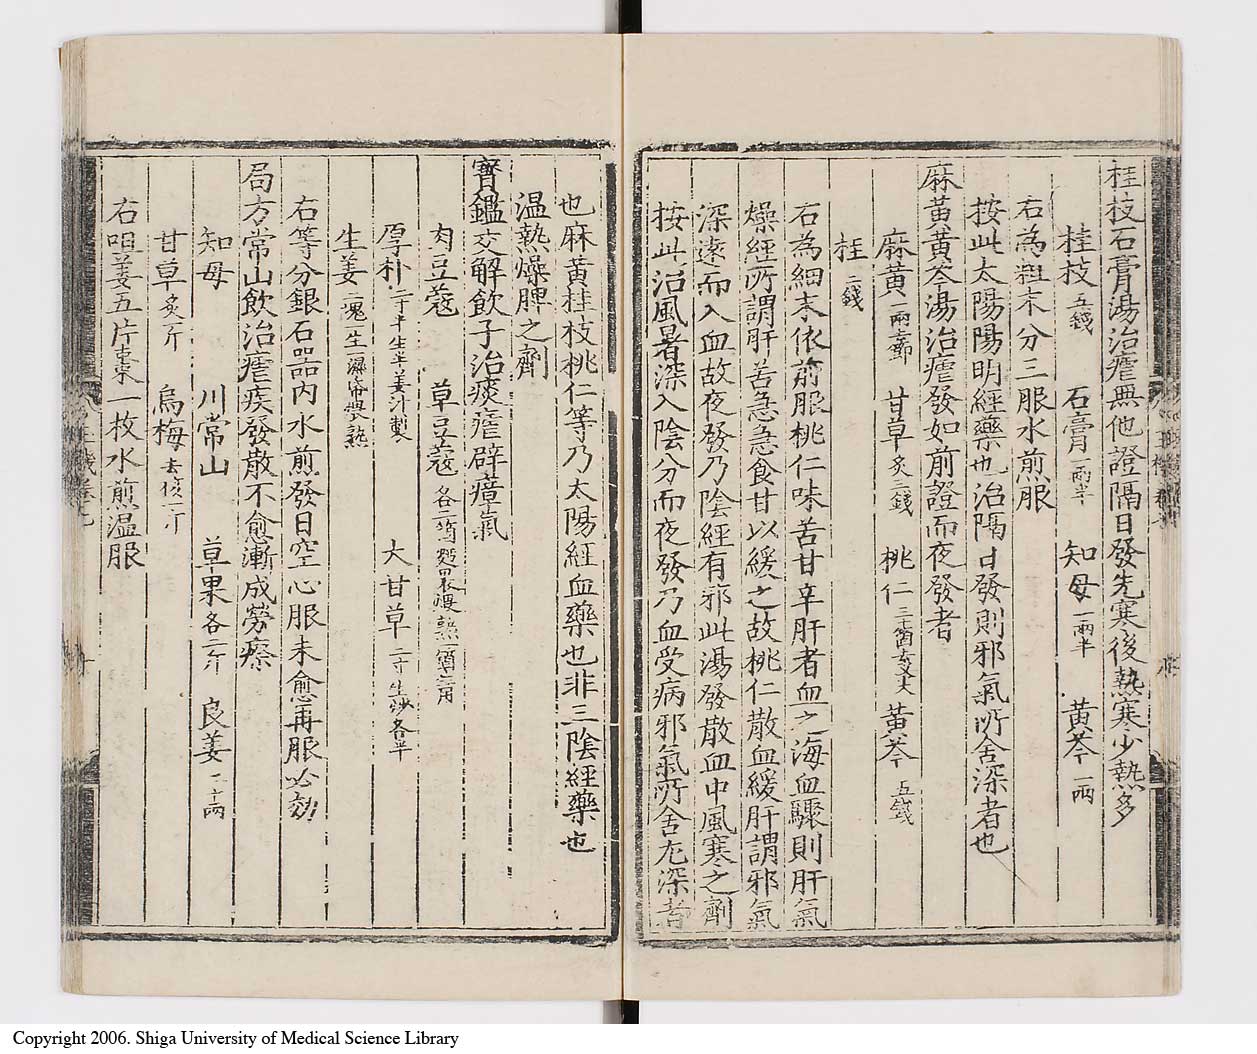 桂枝石膏湯治瘧無他證隔日發先寒後熱寒少熱多
桂枝五錢 石膏一兩半 知母一兩半 黃芩一兩
右為粗末分三服水煎服
按此太陽陽明經藥也治隔日發則邪氣所舍深者也
麻黃黃芩湯治瘧發如前證而夜發者
麻黃一兩去節 甘草炙三錢 桃仁三十箇去皮尖 黃芩五錢
桂二錢
右為細末依前服桃仁味苦甘辛肝者血之海血驟則肝氣
燥經所謂肝苦急急食甘以緩之故桃仁散血緩肝謂邪氣
深遠而入血故夜發乃陰經有邪此湯發散血中風寒之劑
按此治風暑深入陰分而夜發乃血受病邪氣所舍尤深者
也麻黃桂枝桃仁等乃太陽經血藥也非三陰經藥也
温熱燥脾之劑
寶鑑交解飲子治痰瘧辟瘴氣
肉豆蔻 草豆蔻各二箇麪裹煨熟
厚朴二寸半生半姜汁製 大甘草二寸半生炒各半
生姜二塊一生一濕帋煨熟
右等分銀石器內水煎發日空心服未愈再服必効
局方常山飲治瘧疾發散不愈漸成勞瘵
知母 川常山 草果各二斤 良姜二十兩
甘草炙一斤 烏梅去核一斤
右㕮姜五片棗一枚水煎温服
Copyright 2006. Shiga University of Medical Science Library